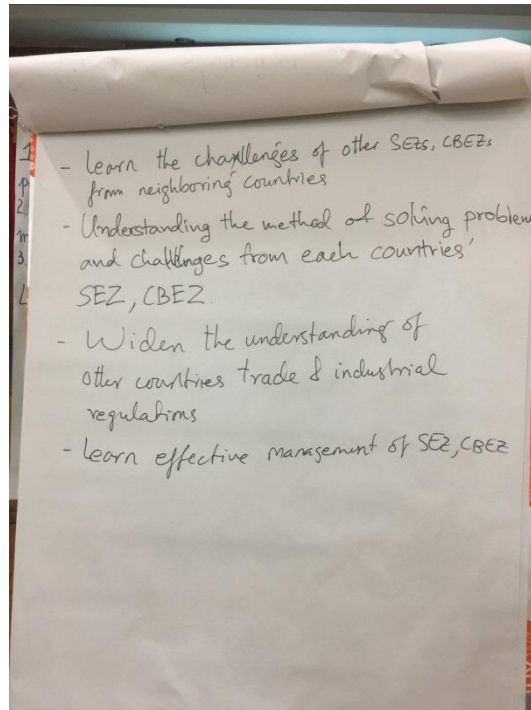 - Learn the challenges of other SEZs, CBEZs
from neighboring countries
- Understanding the method of solving problem
and challenges from each countries'
SEZ, CBEZ.
- Widen the understanding of
other countries trade & industrial
regulations
- Learn effective management of SEZ, CBEZ
1
p
2
m
3.
L